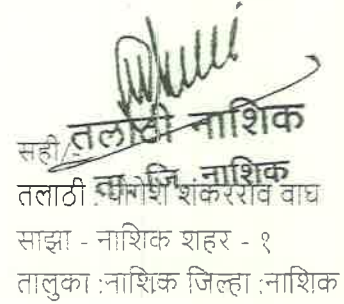 तलाठी नाशिक
सही/
ता. जि. नाशिक
तलाठी : योगेश शंकरराव वाघ
साझा - नाशिक शहर - १
तालुका :नाशिक जिल्हा :नाशिक